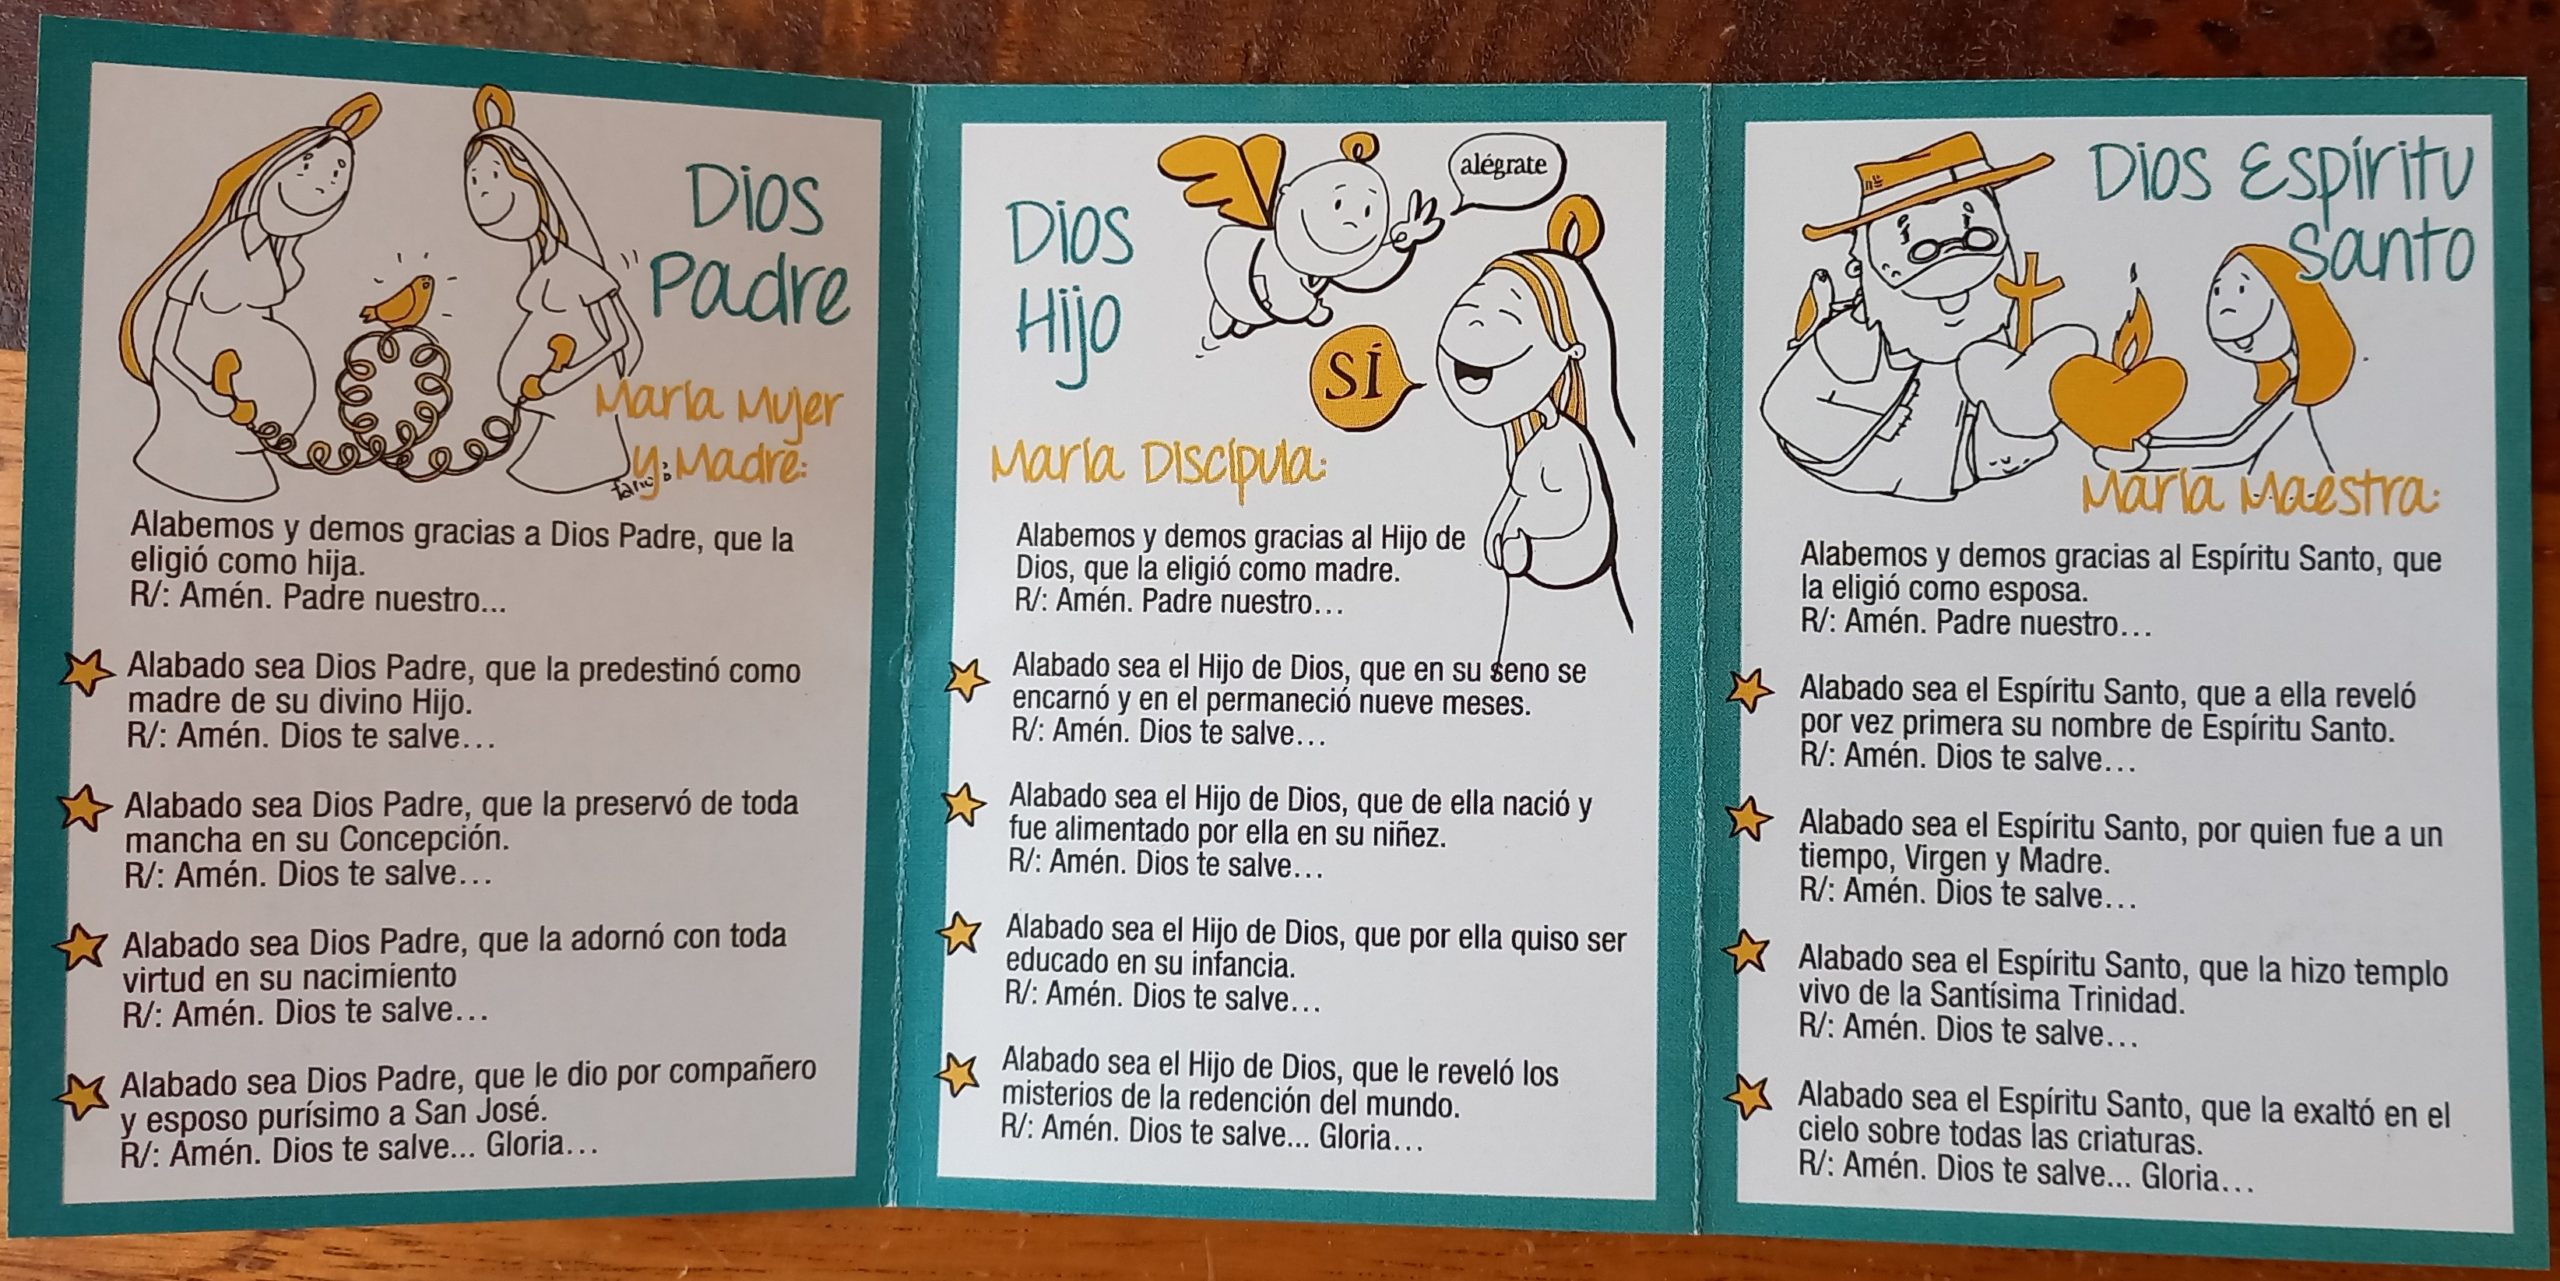 Dios
Padre
María Mujer
y Madre:
fano
Alabemos y demos gracias a Dios Padre, que la
eligió como hija.
R/: Amén. Padre nuestro...
Alabado sea Dios Padre, que la predestinó como
madre de su divino Hijo.
R/: Amén. Dios te salve…
Alabado sea Dios Padre, que la preservó de toda
mancha en su Concepción.
R/: Amén. Dios te salve…
Alabado sea Dios Padre, que la adornó con toda
virtud en su nacimiento
R/: Amén. Dios te salve…
Alabado sea Dios Padre, que le dio por compañero
y esposo purísimo a San José.
R/: Amén. Dios te salve... Gloria…
alégrate
Dios
Hijo
SÍ
María Discípula:
Alabemos y demos gracias al Hijo de
Dios, que la eligió como madre.
R/: Amén. Padre nuestro…
Alabado sea el Hijo de Dios, que en su seno se
encarnó y en el permaneció nueve meses.
R/: Amén. Dios te salve…
Alabado sea el Hijo de Dios, que de ella nació y
fue alimentado por ella en su niñez.
R/: Amén. Dios te salve…
Alabado sea el Hijo de Dios, que por ella quiso ser
educado en su infancia.
R/: Amén. Dios te salve…
Alabado sea el Hijo de Dios, que le reveló los
misterios de la redención del mundo.
R/: Amén. Dios te salve... Gloria…
Dios Espíritu
Santo
María Maestra:
Alabemos y demos gracias al Espíritu Santo, que
la eligió como esposa.
R/: Amén. Padre nuestro…
Alabado sea el Espíritu Santo, que a ella reveló
por vez primera su nombre de Espíritu Santo.
R/: Amén. Dios te salve…
Alabado sea el Espíritu Santo, por quien fue a un
tiempo, Virgen y Madre.
R/: Amén. Dios te salve…
Alabado sea el Espíritu Santo, que la hizo templo
vivo de la Santísima Trinidad.
R/: Amén. Dios te salve…
Alabado sea el Espíritu Santo, que la exaltó en el
cielo sobre todas las criaturas.
R/: Amén. Dios te salve... Gloria…